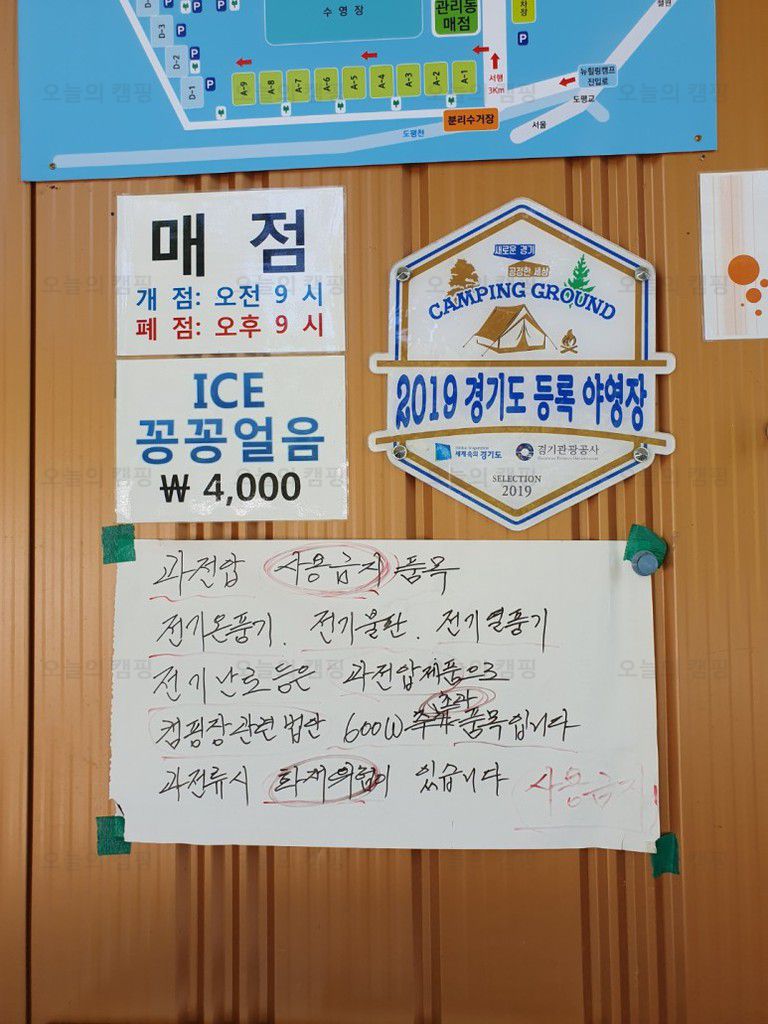 수영장
관리동
매점
차장
철원
D-3
D-2
D-1
P
P
P
P
P
A-9
A-8
A-7
A-6
A-5
A-4
A-3
A-2
A-1
서행
3Km
뉴힐링캠프
진입로
도평교
분리수거장
서울
도평천
매 점
개 점: 오전 9 시
폐 점: 오후 9 시
ICE
꽁꽁얼음
₩ 4,000
새로운 경기
공정한 세상
CAMPING GROUND
2019 경기도 등록 야영장
세계속의 경기도
경기관광공사
SELECTION
2019
과전압 사용금지 품목
전기온풍기. 전기불판. 전기열풍기
전기난로 등은 과전압제품으로
초과
캠핑장관련법안 600W 품목입니다
과전류시 화재위험이 있습니다 사용금지!
오늘의 캠핑